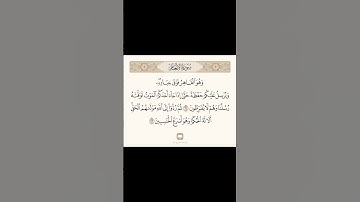 سورة الأنعام
وَهُوَ ٱلْقَاهِرُ فَوْقَ عِبَادِهِۦ
وَيُرْسِلُ عَلَيْكُمْ حَفَظَةً حَتَّىٰٓ إِذَا جَآءَ أَحَدَكُمُ ٱلْمَوْتُ تَوَفَّتْهُ
رُسُلُنَا وَهُمْ لَا يُفَرِّطُونَ ٦١ ثُمَّ رُدُّوٓا۟ إِلَى ٱللَّهِ مَوْلَىٰهُمُ ٱلْحَقِّ
أَلَا لَهُ ٱلْحُكْمُ وَهُوَ أَسْرَعُ ٱلْحَٰسِبِينَ ٦٢